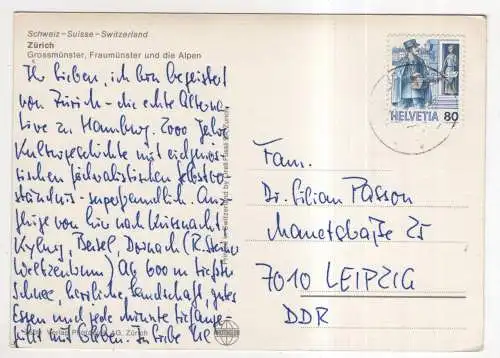 Schweiz – Suisse – Switzerland
Zürich
Grossmünster, Fraumünster und die Alpen
Ihr Lieben, ich bin begeistert
von Zürich – die echte Alterna-
tive zu Hamburg. 2000 Jahre
Kulturgeschichte mit eidgenös-
sischen föderalistischen Selbstver-
ständnis – superfreundlich. Aus-
flüge von hier nach Küssnacht
Kyburg, Basel, Dornach (R. Steiner
Weltzentrum) Ab 600 m tiefster
Schnee, herrliche Landschaft, gutes
Essen und jede Minute
und bleiben. In Liebe
HELVETIA 80
Fam.
Dr. Filian Passon
25
7010 LEIPZIG
DDR
Verlag AG, Zürich